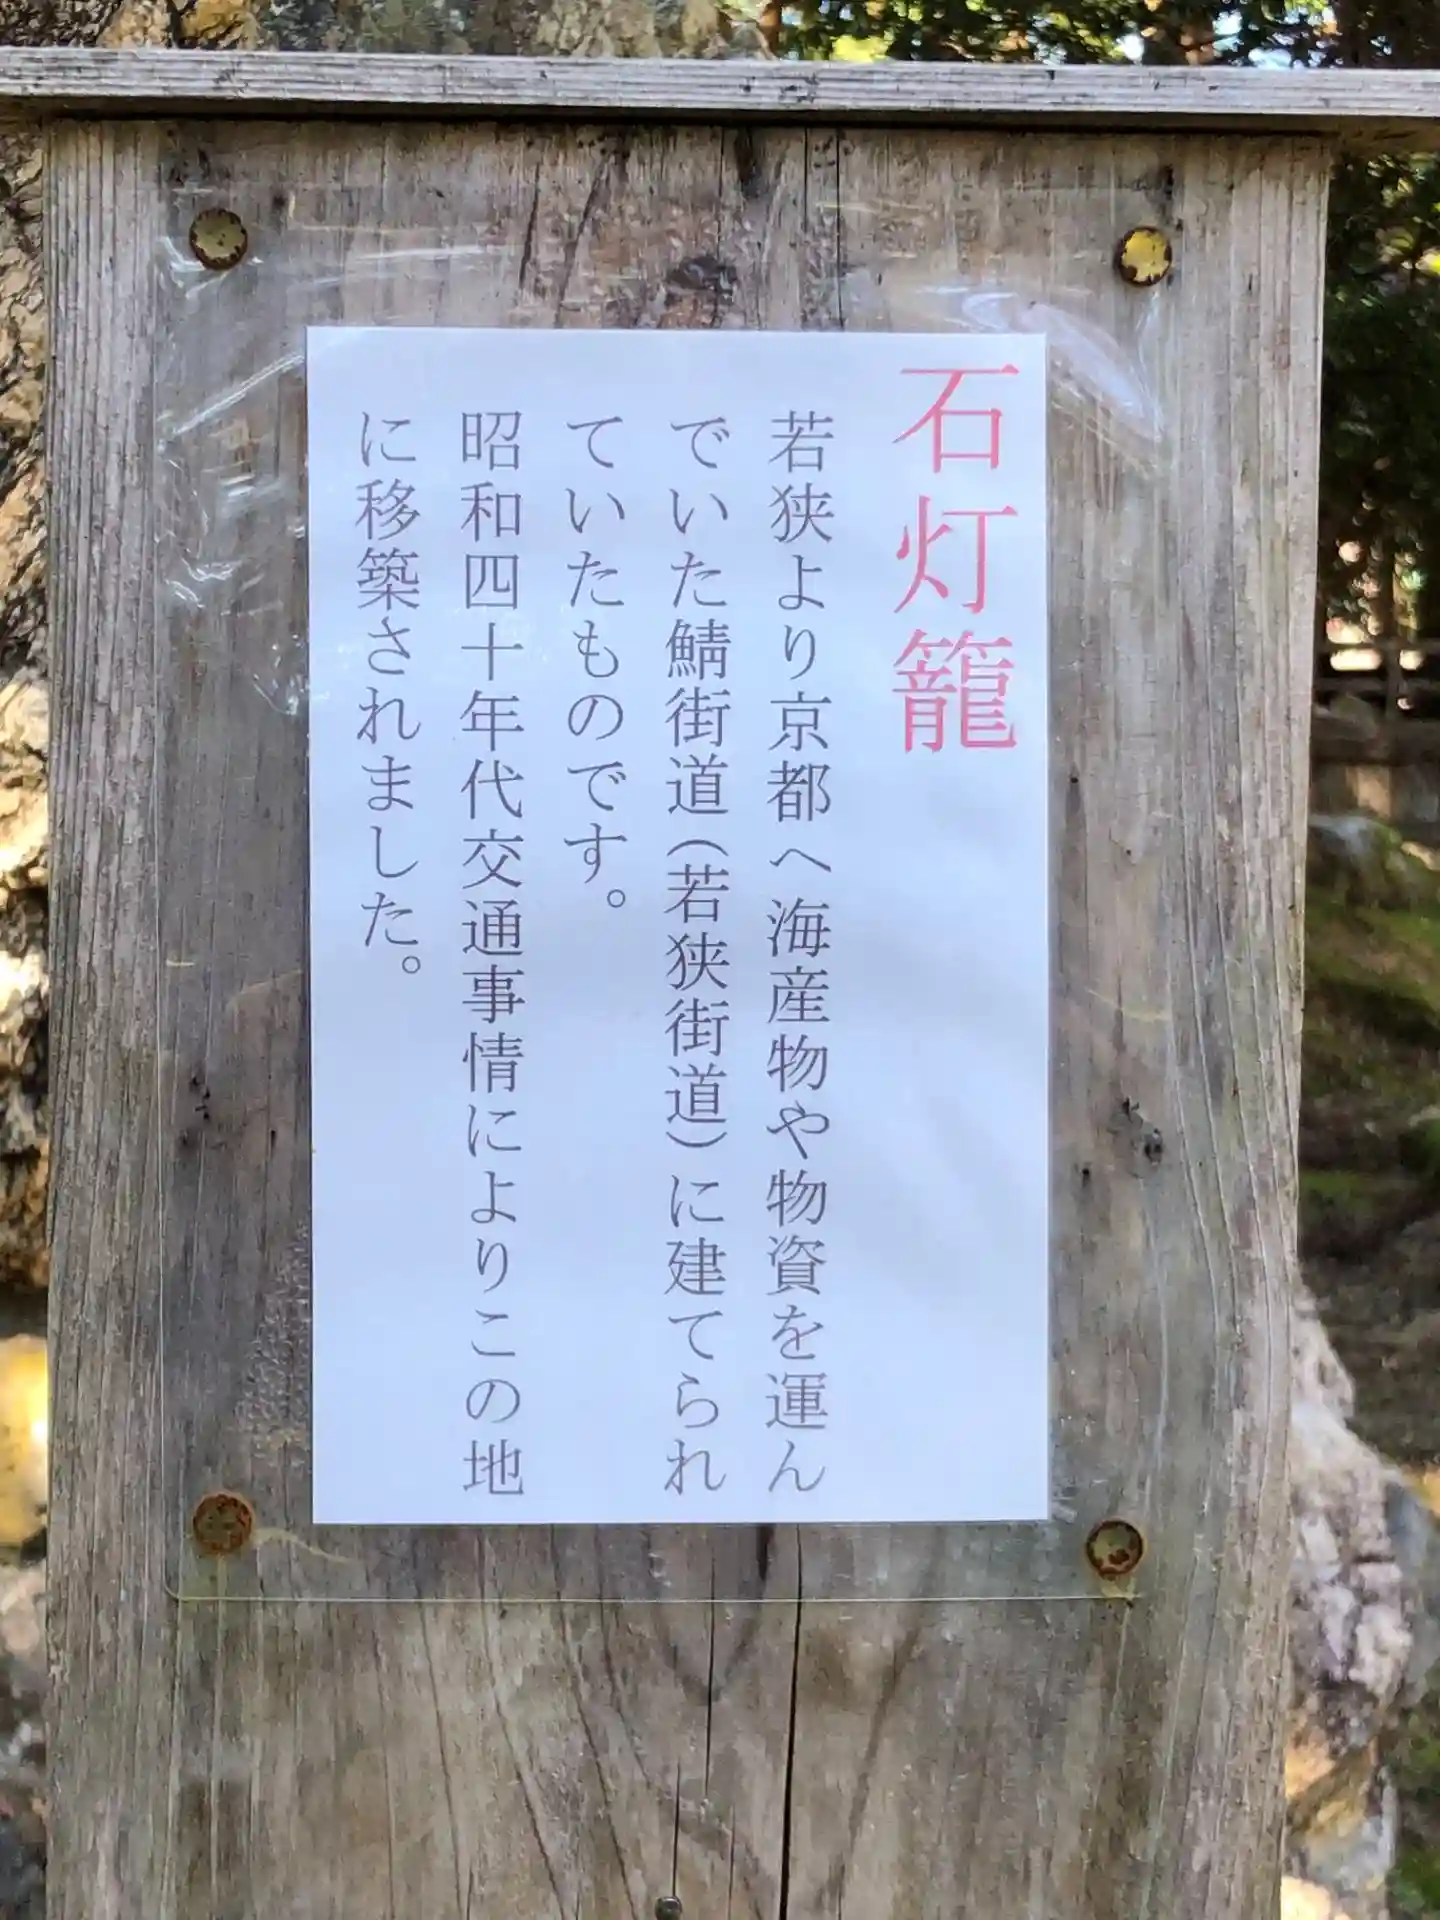 石灯籠
若狭より京都へ海産物や物資を運ん
でいた鯖街道(若狭街道)に建てられ
ていたものです。
昭和四十年代交通事情によりこの地
に移築されました。